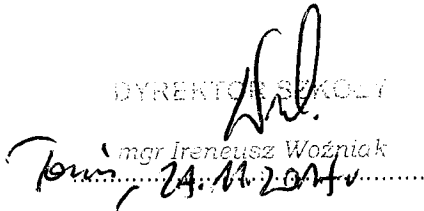 DYREKTOR SZKOŁY
mgr Ireneusz Woźniak
24.11.2017r